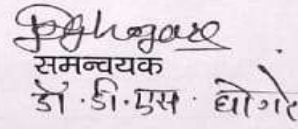 समन्वयक
डॉ. डी. एस. घोगरे